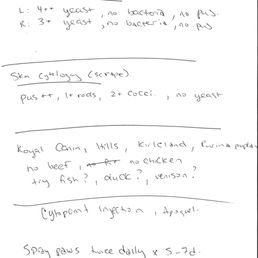 L: 4++ yeast, no bacteria, no pus.
R: 3+ yeast, no bacteria, no pus.
Skin cytology (scrape)
pus ++, 1+ rods, 2+ cocci, no yeast
Royal Canin, Hills, Kirkland, Purina
no beef, no chicken
try fish?, duck?, venison?
Cytopoint injection, Apoquel.
Spray paws twice daily x 5-7d.